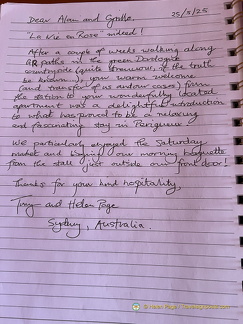 25/5/25
Dear Alain and Gisèle.
'La Vie en Rose' indeed!
After a couple of weeks walking along
GR paths in the green Dordogne
countryside (quite strenuous, if the truth
be known), your warm welcome
(and transfer of us and our cases) from
the station to your wonderfully located
apartment was a delightful introduction
to what has proved to be a relaxing
and fascinating stay in Perigueux.
We particularly enjoyed the Saturday
market and buying our morning baguette
from the stall just outside our front door!
Thanks for your kind hospitality,
Tony and Helen Page
Sydney, Australia.